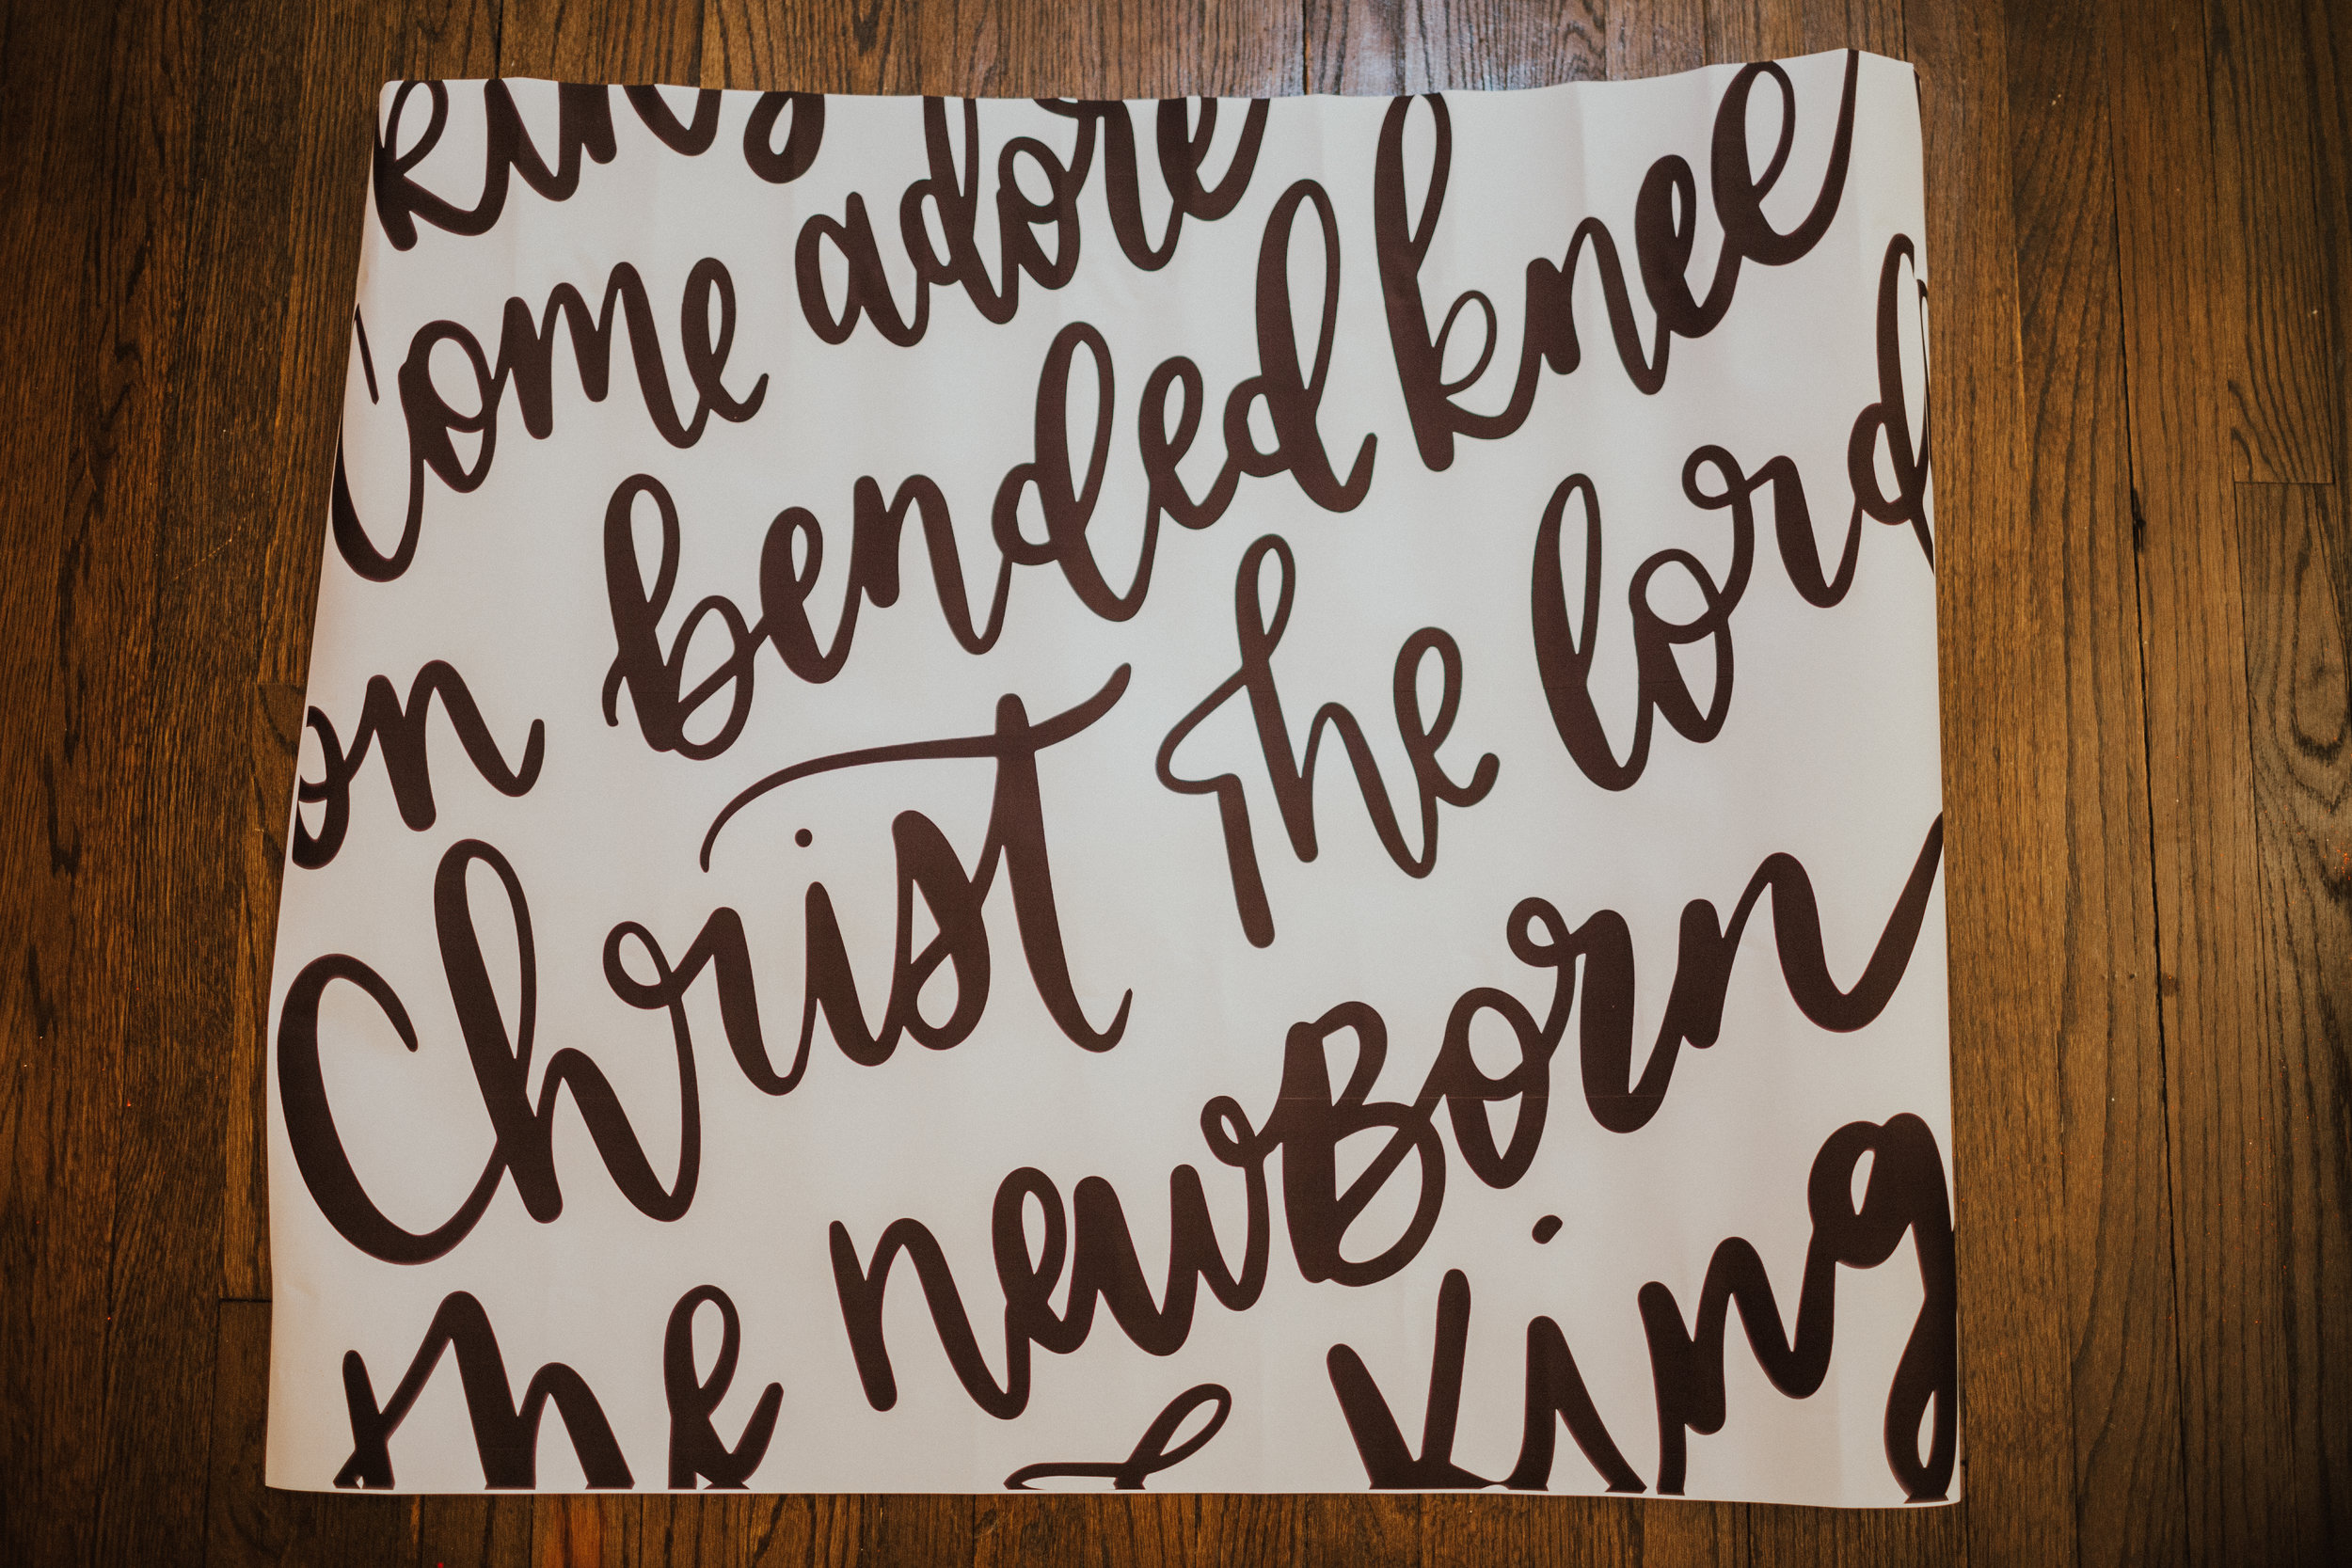 Come adore
on bended knee
Christ the lord
the newBorn
King